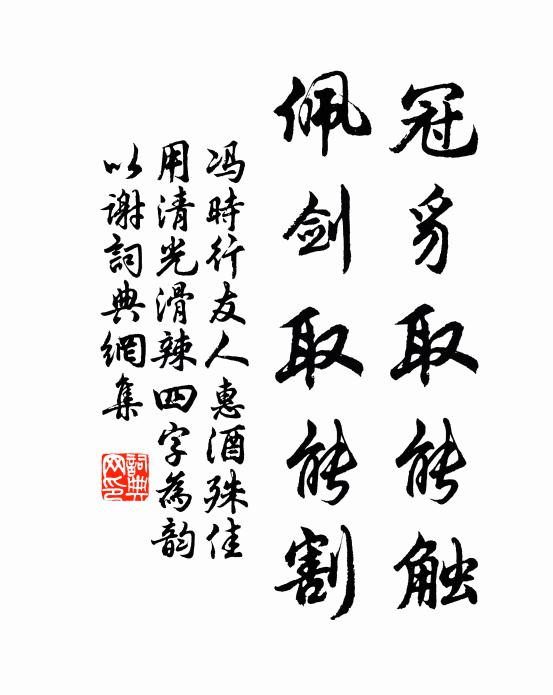 冠豸取能触
佩剑取能割
冯時行友人惠酒殊佳
用清光滑辣四字為韵
以谢詞典網集
詞典网印